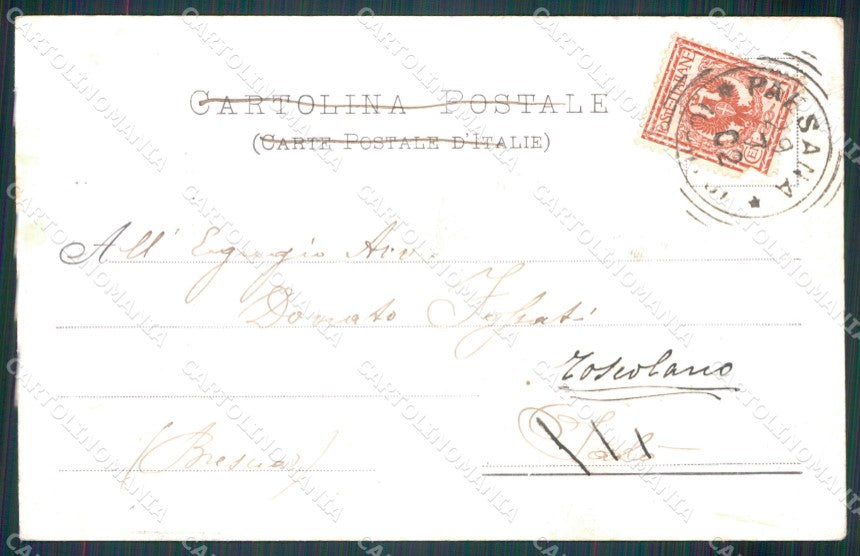 CARTOLINA POSTALE
(CARTE POSTALE D'ITALIE)
POSTE ITALIANE
PAESANA
All' Egregio Avv.
Donato
Toscolano
Salò
(Brescia)
CARTOLINOMANIA